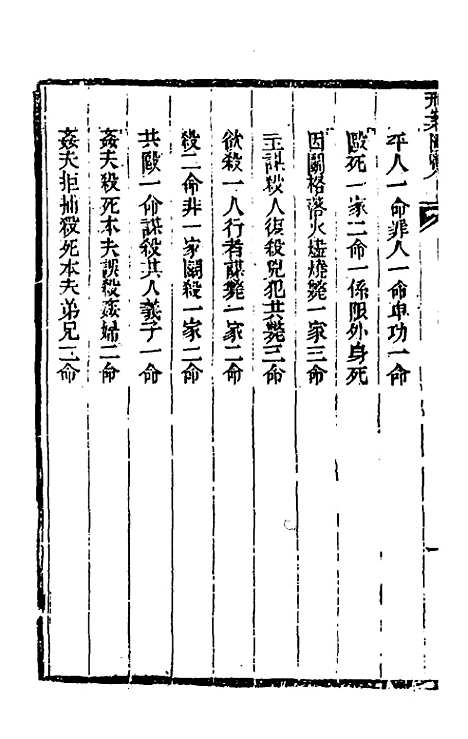 刑案匯覽
平人一命罪人一命卑功一命
毆死一家二命一係限外身死
因鬬格落火爐燒斃一家三命
主謀殺人復殺兇犯共斃三命
欲殺一人行者謀斃一家二命
殺二命非一家鬬殺一家二命
共毆一命謀殺其人義子一命
姦夫殺死本夫誤殺姦婦二命
姦夫拒捕殺死本夫弟兄二命